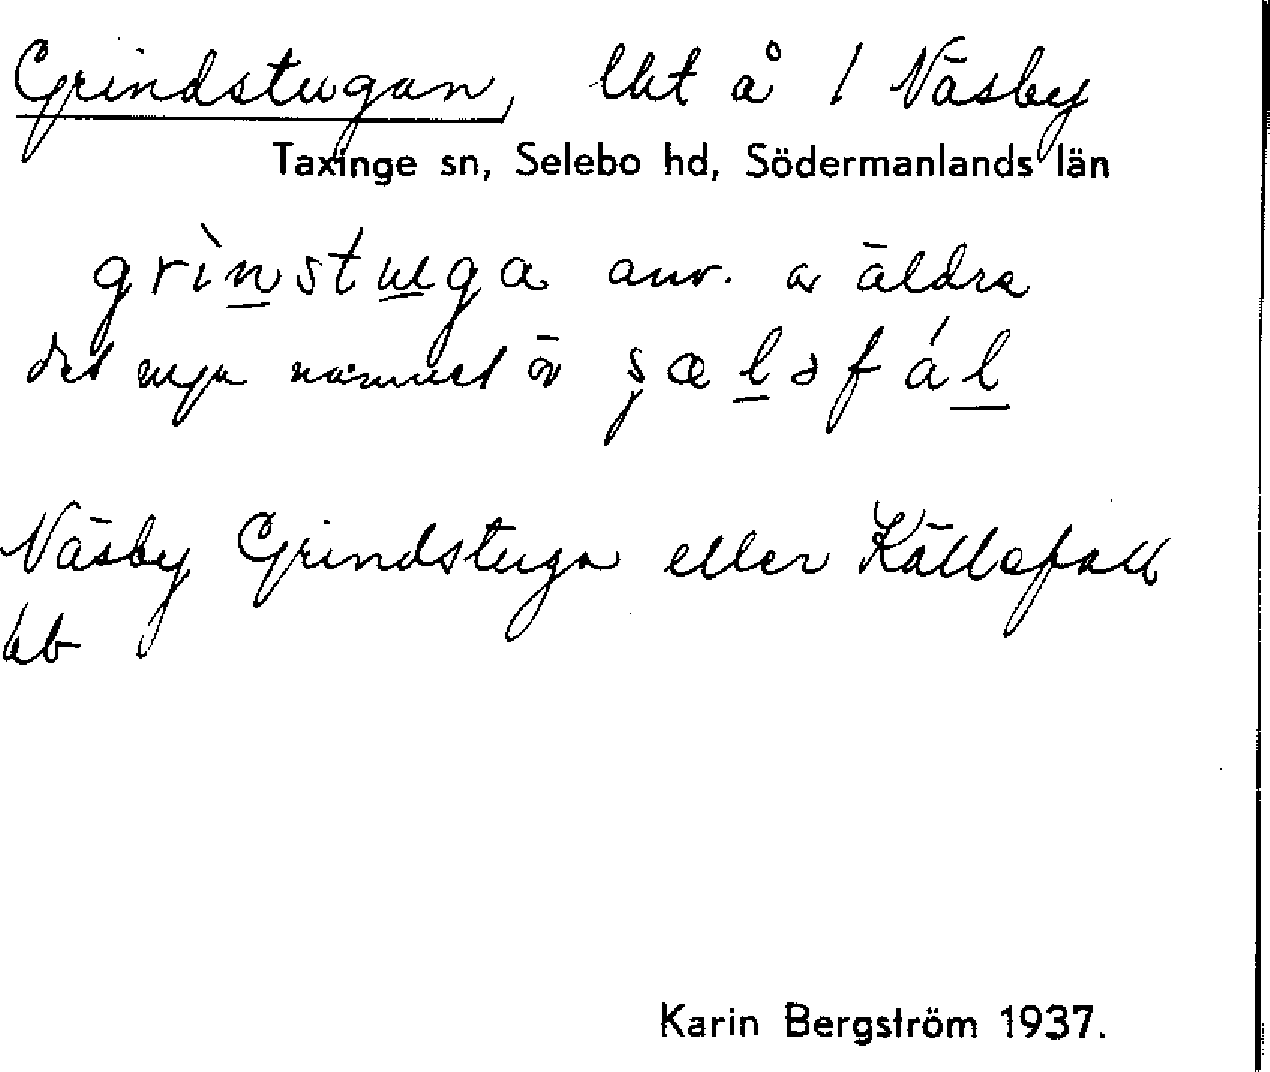 Grindstugan, lht å 1 Näsby
Taxinge sn, Selebo hd, Södermanlands län
grìnstuga anv. av äldra
det nya namnet är şælǝfál
Näsby Grindstuga eller Källefall
hb
Karin Bergström 1937.